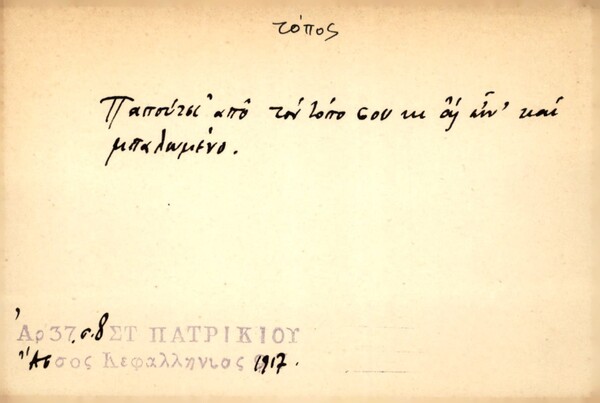 τόπος
Παπούτσι ἀπὸ τὸν τόπο σου κι ἂς εἶν' καὶ
μπαλωμένο.
Ἀρ 37, σ. 8 ΣΤ ΠΑΤΡΙΚΙΟΥ
Ἄσσος Κεφαλληνιος 1917.